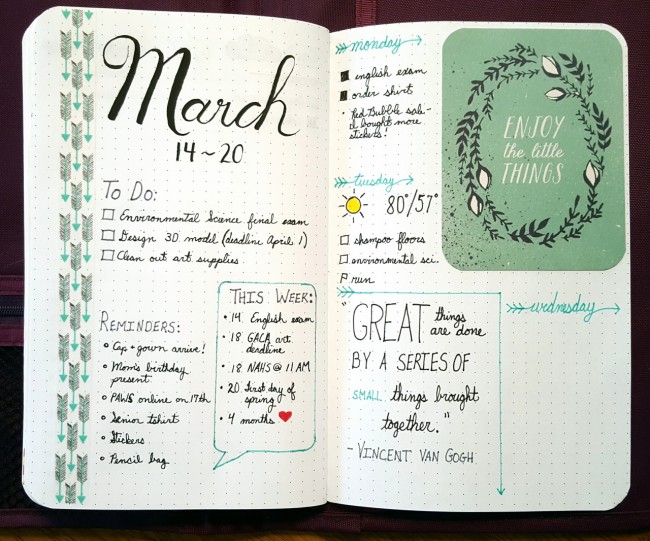 March
14~20
To Do:
Environmental Science final exam
Design 3D model (deadline April 1)
Clean out art supplies
Reminders:
Cap + gown arrive!
Mom's birthday
present
PAWS online on 17th
Senior tshirt
Stickers
Pencil bag
This Week:
• 14 English exam
• 18 GALA art
deadline
• 18 NAHS @ 11 AM
• 20 First day of
spring
• 4 months
monday
english exam
order shirt
• Red Bubble sale
I bought more
stickers!
tuesday
80°/57°
shampoo floors
environmental sci.
run
"GREAT things
are done
BY A SERIES OF
SMALL things brought
together."
- VINCENT VAN GOGH
ENJOY
the little
THINGS
wednesday